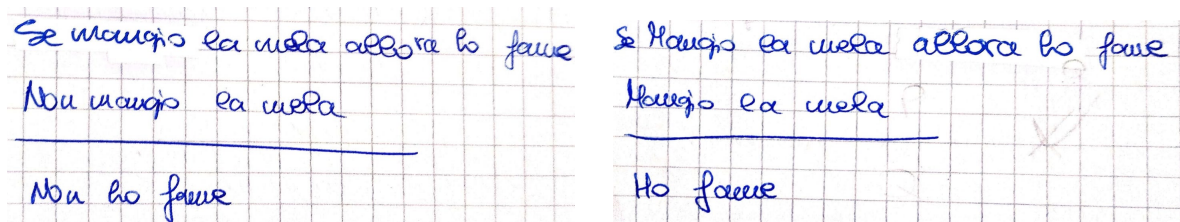 Se mangio la mela allora ho fame
Non mangio la mela
Non ho fame
Se Mangio la mela allora ho fame
Mangio la mela
Ho fame